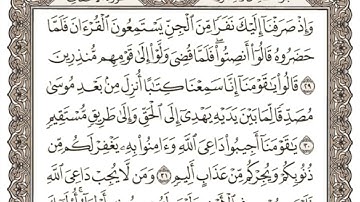 وَإِذْ صَرَفْنَآ إِلَيْكَ نَفَرًا مِّنَ ٱلْجِنِّ يَسْتَمِعُونَ ٱلْقُرْءَانَ فَلَمَّا
حَضَرُوهُ قَالُوٓا۟ أَنصِتُوا۟ ۖ فَلَمَّا قُضِىَ وَلَّوْا۟ إِلَىٰ قَوْمِهِم مُّنذِرِينَ
٢٩ قَالُوا۟ يَٰقَوْمَنَآ إِنَّا سَمِعْنَا كِتَٰبًا أُنزِلَ مِنۢ بَعْدِ مُوسَىٰ
مُصَدِّقًا لِّمَا بَيْنَ يَدَيْهِ يَهْدِىٓ إِلَى ٱلْحَقِّ وَإِلَىٰ طَرِيقٍ مُّسْتَقِيمٍ
٣٠ يَٰقَوْمَنَآ أَجِيبُوا۟ دَاعِىَ ٱللَّهِ وَءَامِنُوا۟ بِهِۦ يَغْفِرْ لَكُم مِّن
ذُنُوبِكُمْ وَيُجِرْكُم مِّنْ عَذَابٍ أَلِيمٍ ٣١ وَمَن لَّا يُجِبْ دَاعِىَ ٱللَّهِ